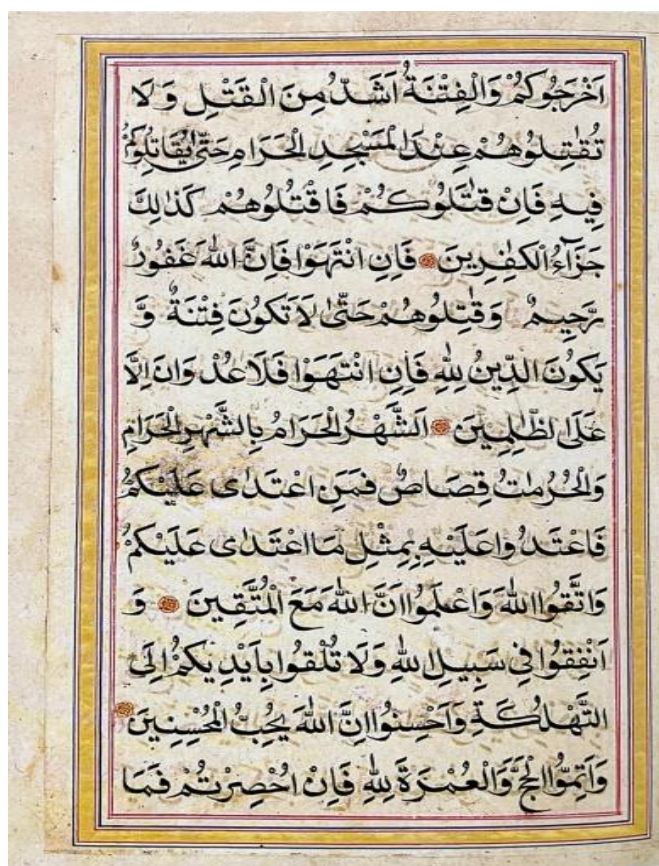 اَخْرَجُوكُمْ وَالْفِتْنَةُ اَشَدُّ مِنَ الْقَتْلِ وَلَا
تُقٰتِلُوهُمْ عِنْدَ الْمَسْجِدِ الْحَرَامِ حَتّٰى يُقَاتِلُوكُمْ
فِيهِ فَاِنْ قٰتَلُوكُمْ فَاقْتُلُوهُمْ كَذٰلِكَ
جَزَآءُ الْكٰفِرِينَ فَاِنِ انْتَهَوْا فَاِنَّ اللّٰهَ غَفُورٌ
رَّحِيمٌ وَقٰتِلُوهُمْ حَتّٰى لَا تَكُونَ فِتْنَةٌ وَّ
يَكُونَ الدِّينُ لِلّٰهِ فَاِنِ انْتَهَوْا فَلَا عُدْوَانَ اِلَّا
عَلَى الظّٰلِمِينَ اَلشَّهْرُ الْحَرَامُ بِالشَّهْرِ الْحَرَامِ
وَالْحُرُمٰتُ قِصَاصٌ فَمَنِ اعْتَدٰى عَلَيْكُمْ
فَاعْتَدُوا عَلَيْهِ بِمِثْلِ مَا اعْتَدٰى عَلَيْكُمْ
وَاتَّقُوا اللّٰهَ وَاعْلَمُوا اَنَّ اللّٰهَ مَعَ الْمُتَّقِينَ وَ
اَنْفِقُوا فِي سَبِيلِ اللّٰهِ وَلَا تُلْقُوا بِاَيْدِيكُمْ اِلَى
التَّهْلُكَةِ وَاَحْسِنُوا اِنَّ اللّٰهَ يُحِبُّ الْمُحْسِنِينَ
وَاَتِمُّوا الْحَجَّ وَالْعُمْرَةَ لِلّٰهِ فَاِنْ اُحْصِرْتُمْ فَمَا